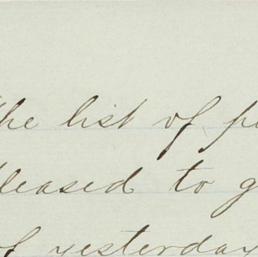 the list of
pleased to
of yesterday